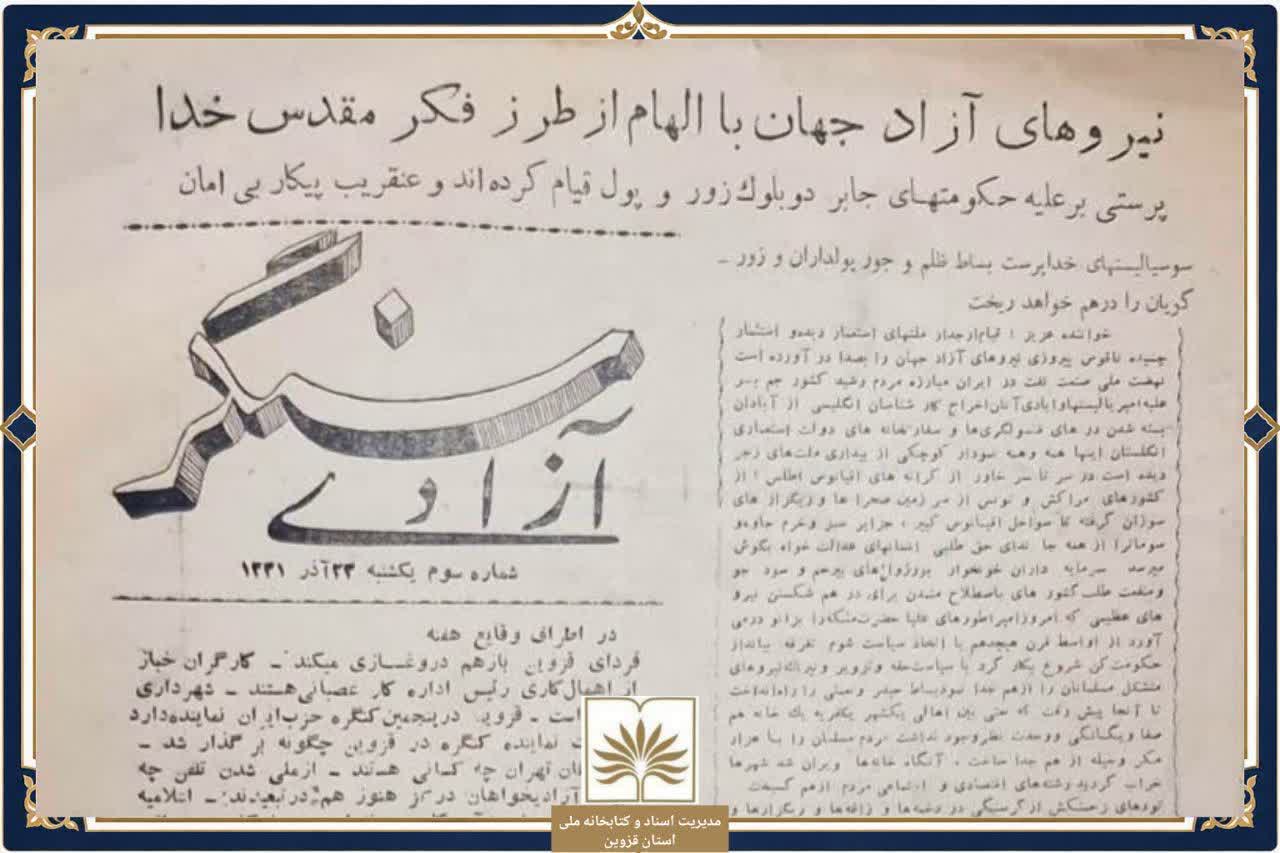 نیروهای آزاد جهان با الهام از طرز فکر مقدس خدا
پرستی بر علیه حکومتهای جابر دو بلوك زور و پول قیام کرده‌اند و عنقریب پیکار بی امان
سوسیالیستهای خداپرست بساط ظلم و جور پولداران و زور ـ
گویان را درهم خواهد ریخت
سنگر
آزادی
شماره سوم یکشنبه ۲۳ آذر ۱۳۳۱
خواننده عزیز ؛ تمام ارجدار ملتهای استعمار دیده و استثمار
چشیده ناقوس پیروزی نیروهای آزاد جهان را بصدا در آورده است
نهضت ملی صنعت نفت در ایران مبارزه مردم رشید کشور جم بر
علیه امپریالیستها و ایادی آنان اخراج کارشناسان انگلیسی از آبادان
بسته شدن در های قنسولگری‌ها و سفارتخانه های دولت استعماری
انگلستان اینها همه و همه نمودار کوچکی از بیداری ملت‌های زجر
دیده است در سر تا سر خاور از کرانه های اقیانوس اطلس ؛ از
کشورهای مراکش و تونس از سرزمین صحرا ها و ریگزار های
سوزان گرفته تا سواحل اقیانوس کبیر ، جزایر سبز و خرم جاوه و
سوماترا از همه جا ندای حق طلبی انسانهای عدالت خواه بگوش
میرسد سرمایه داران خونخوار بورژواهای بیرحم و سود جو
و منفعت طلب کشور های باصطلاح متمدن برای در هم شکستن نیرو
های عظیمی که امروز امپراطورهای را بزانو درمی
آورد از اواسط قرن هیجدهم با اتخاذ سیاست شوم تفرقه بیانداز
حکومت کن شروع بکار کرد با سیاست حقه و تزویر و نیرنك نیروهای
متشکل مسلمانان را از هم جدا نمود بساط حیدر و نعمتی را راه انداخت
تا آنجا پیش رفت که حتی بین اهالی یکشهر یکقریه یك خانه هم
صفا و یگانگی و وحدت نظر وجود نداشت مردم مسلمان را با هزار
مکر و حیله از هم جدا ساخت ، آنگاه خانه‌ها ویران شد شهرها
خراب گردید رشته‌های اقتصادی و اجتماعی مردم از هم گسیخت
توده‌ای زحمتکش از گرسنگی در دخمه‌ها و زاغه‌ها و ریگزارها و
در اطراف وقایع هفته
فردای قزوین بازهم دروغسازی میکند ـ کارگران خباز
از اهمال کاری رئیس اداره کار عصبانی هستند ـ شهرداری
است ـ قزوین در پنجمین کنگره حزب ایران نماینده دارد
نماینده کنگره در قزوین چگونه بر گذار شد ـ
تهران چه کسانی هستند ـ از ملی شدن تلفن چه
آزادیخواهان در کز هنوز هم در تبعیدند ـ اعلامیه
مدیریت اسناد و کتابخانه ملی
استان قزوین